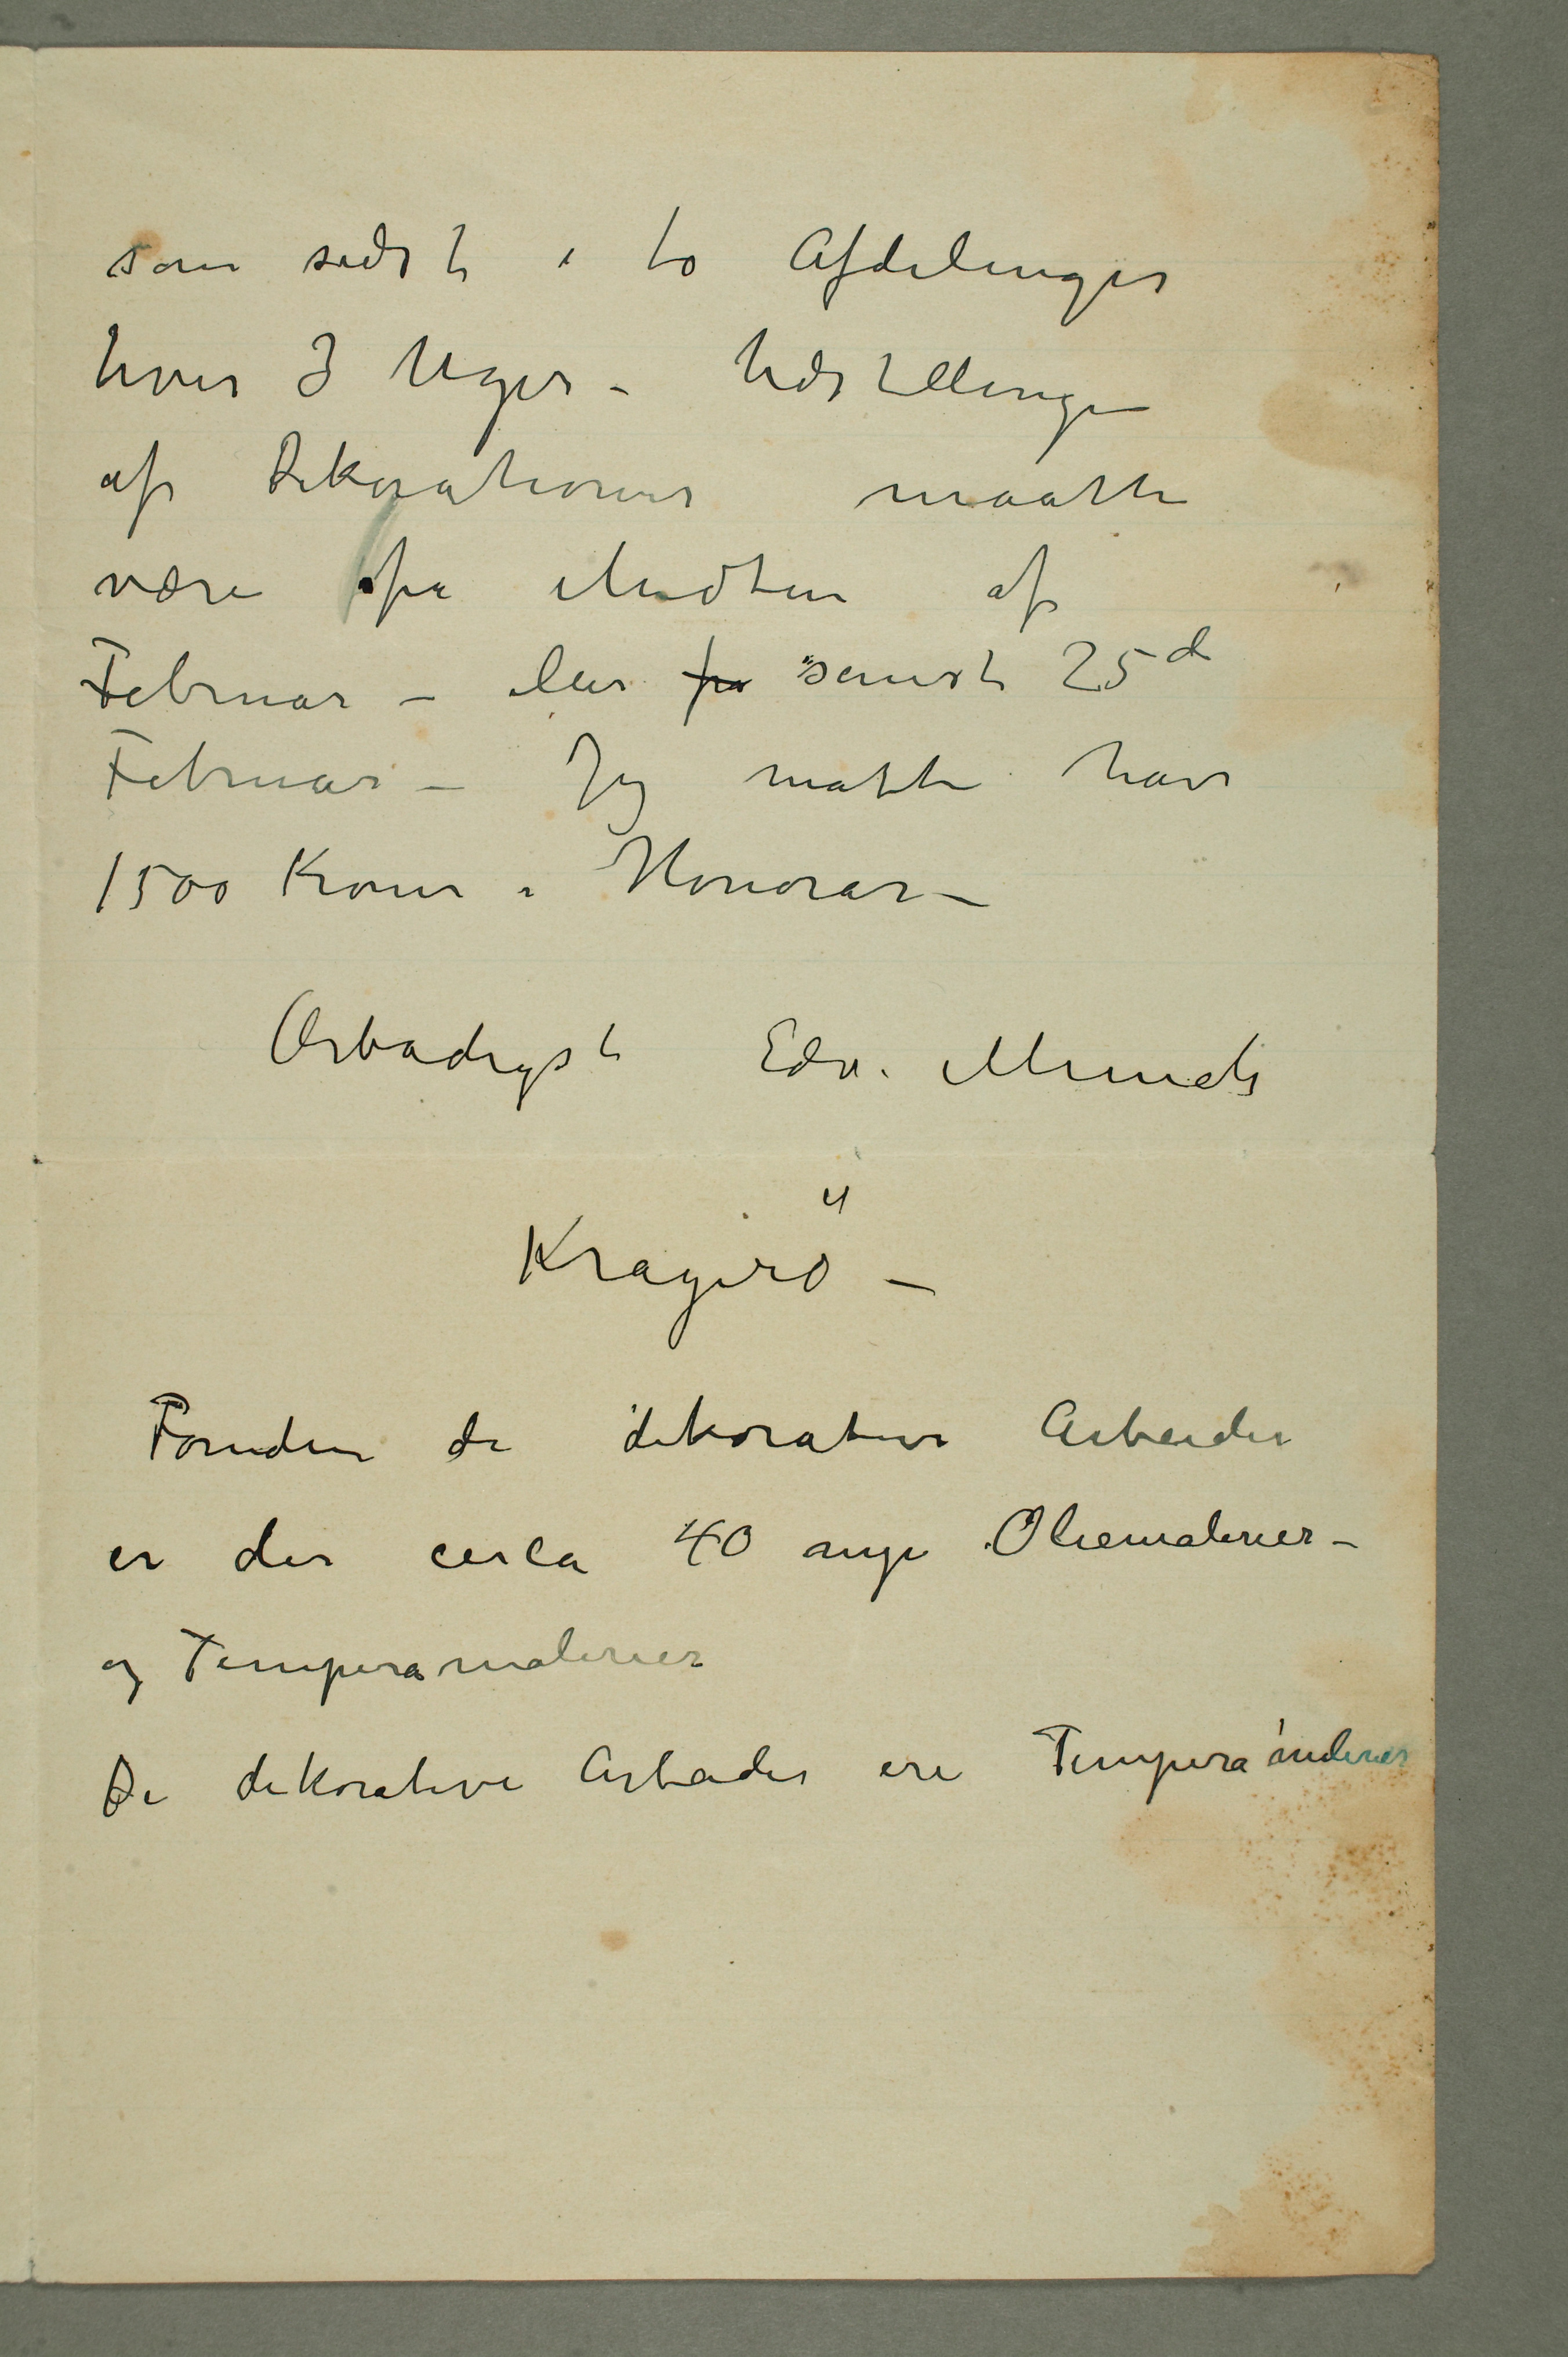 som sidst i to Afdelinger
hver 3 Uger – Udstillingen
af Dekorationer maatte
være fra Midten af
Februar – eller fra senest 25de
Februar – Jeg matte have
1500 Kroner i Honorar –
Ærbødigst Edv. Munch
Kragerö –
Foruden de dekorative Arbeider
er der cirka 40 nye Oliemalerier –
og Temperamalerier
De dekorative Arbeider ere Temperamalerier